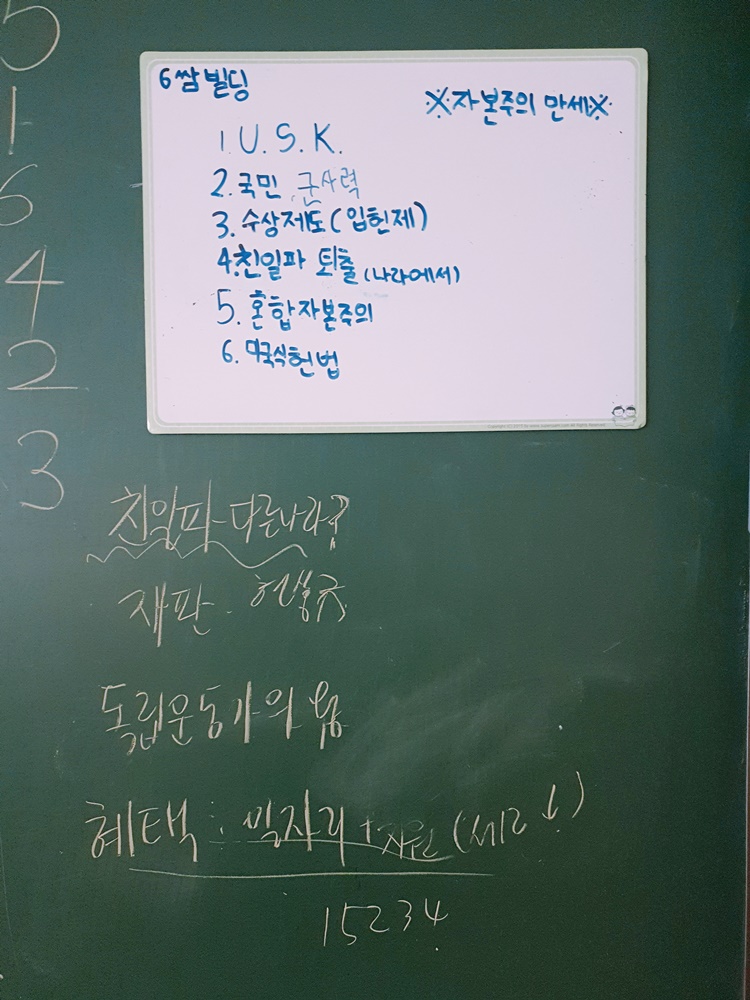 5
1
6
4
2
3
6쌈 빌딩
※자본주의 만세※
1. U. S. K.
2. 국민, 군사력
3. 수상제도(입헌제)
4. 친일파 퇴출(나라에서)
5. 혼합자본주의
6. 미국식헌법
친일파 다른나라?
재판.
독립운동가의
혜택 : 일자리 + 지원 (세금 ↓)
15234